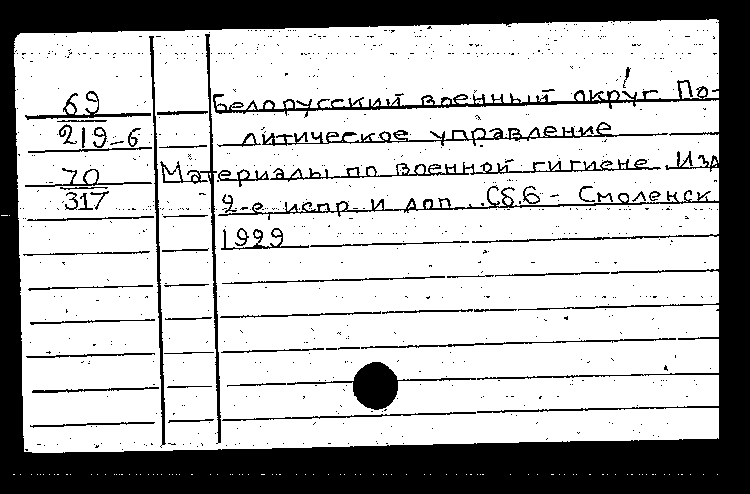 69 Белорусский военный округ. По-
219-6 литическое управление
70 Материалы по военной гигиене. Изд
317 2-е, испр. и доп. Сб.6 - Смоленск
1929